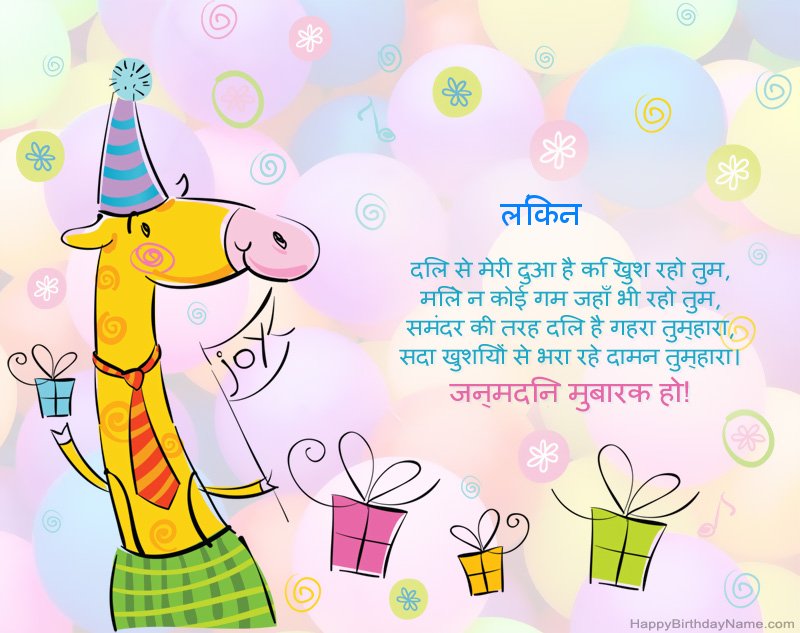 लिंकन
दिल से मेरी दुआ है कि खुश रहो तुम,
मिले न कोई गम जहाँ भी रहो तुम,
समंदर की तरह दिल है गहरा तुम्हारा,
सदा खुशियों से भरा रहे दामन तुम्हारा।
जन्मदिन मुबारक हो!
joy
HappyBirthdayName.com